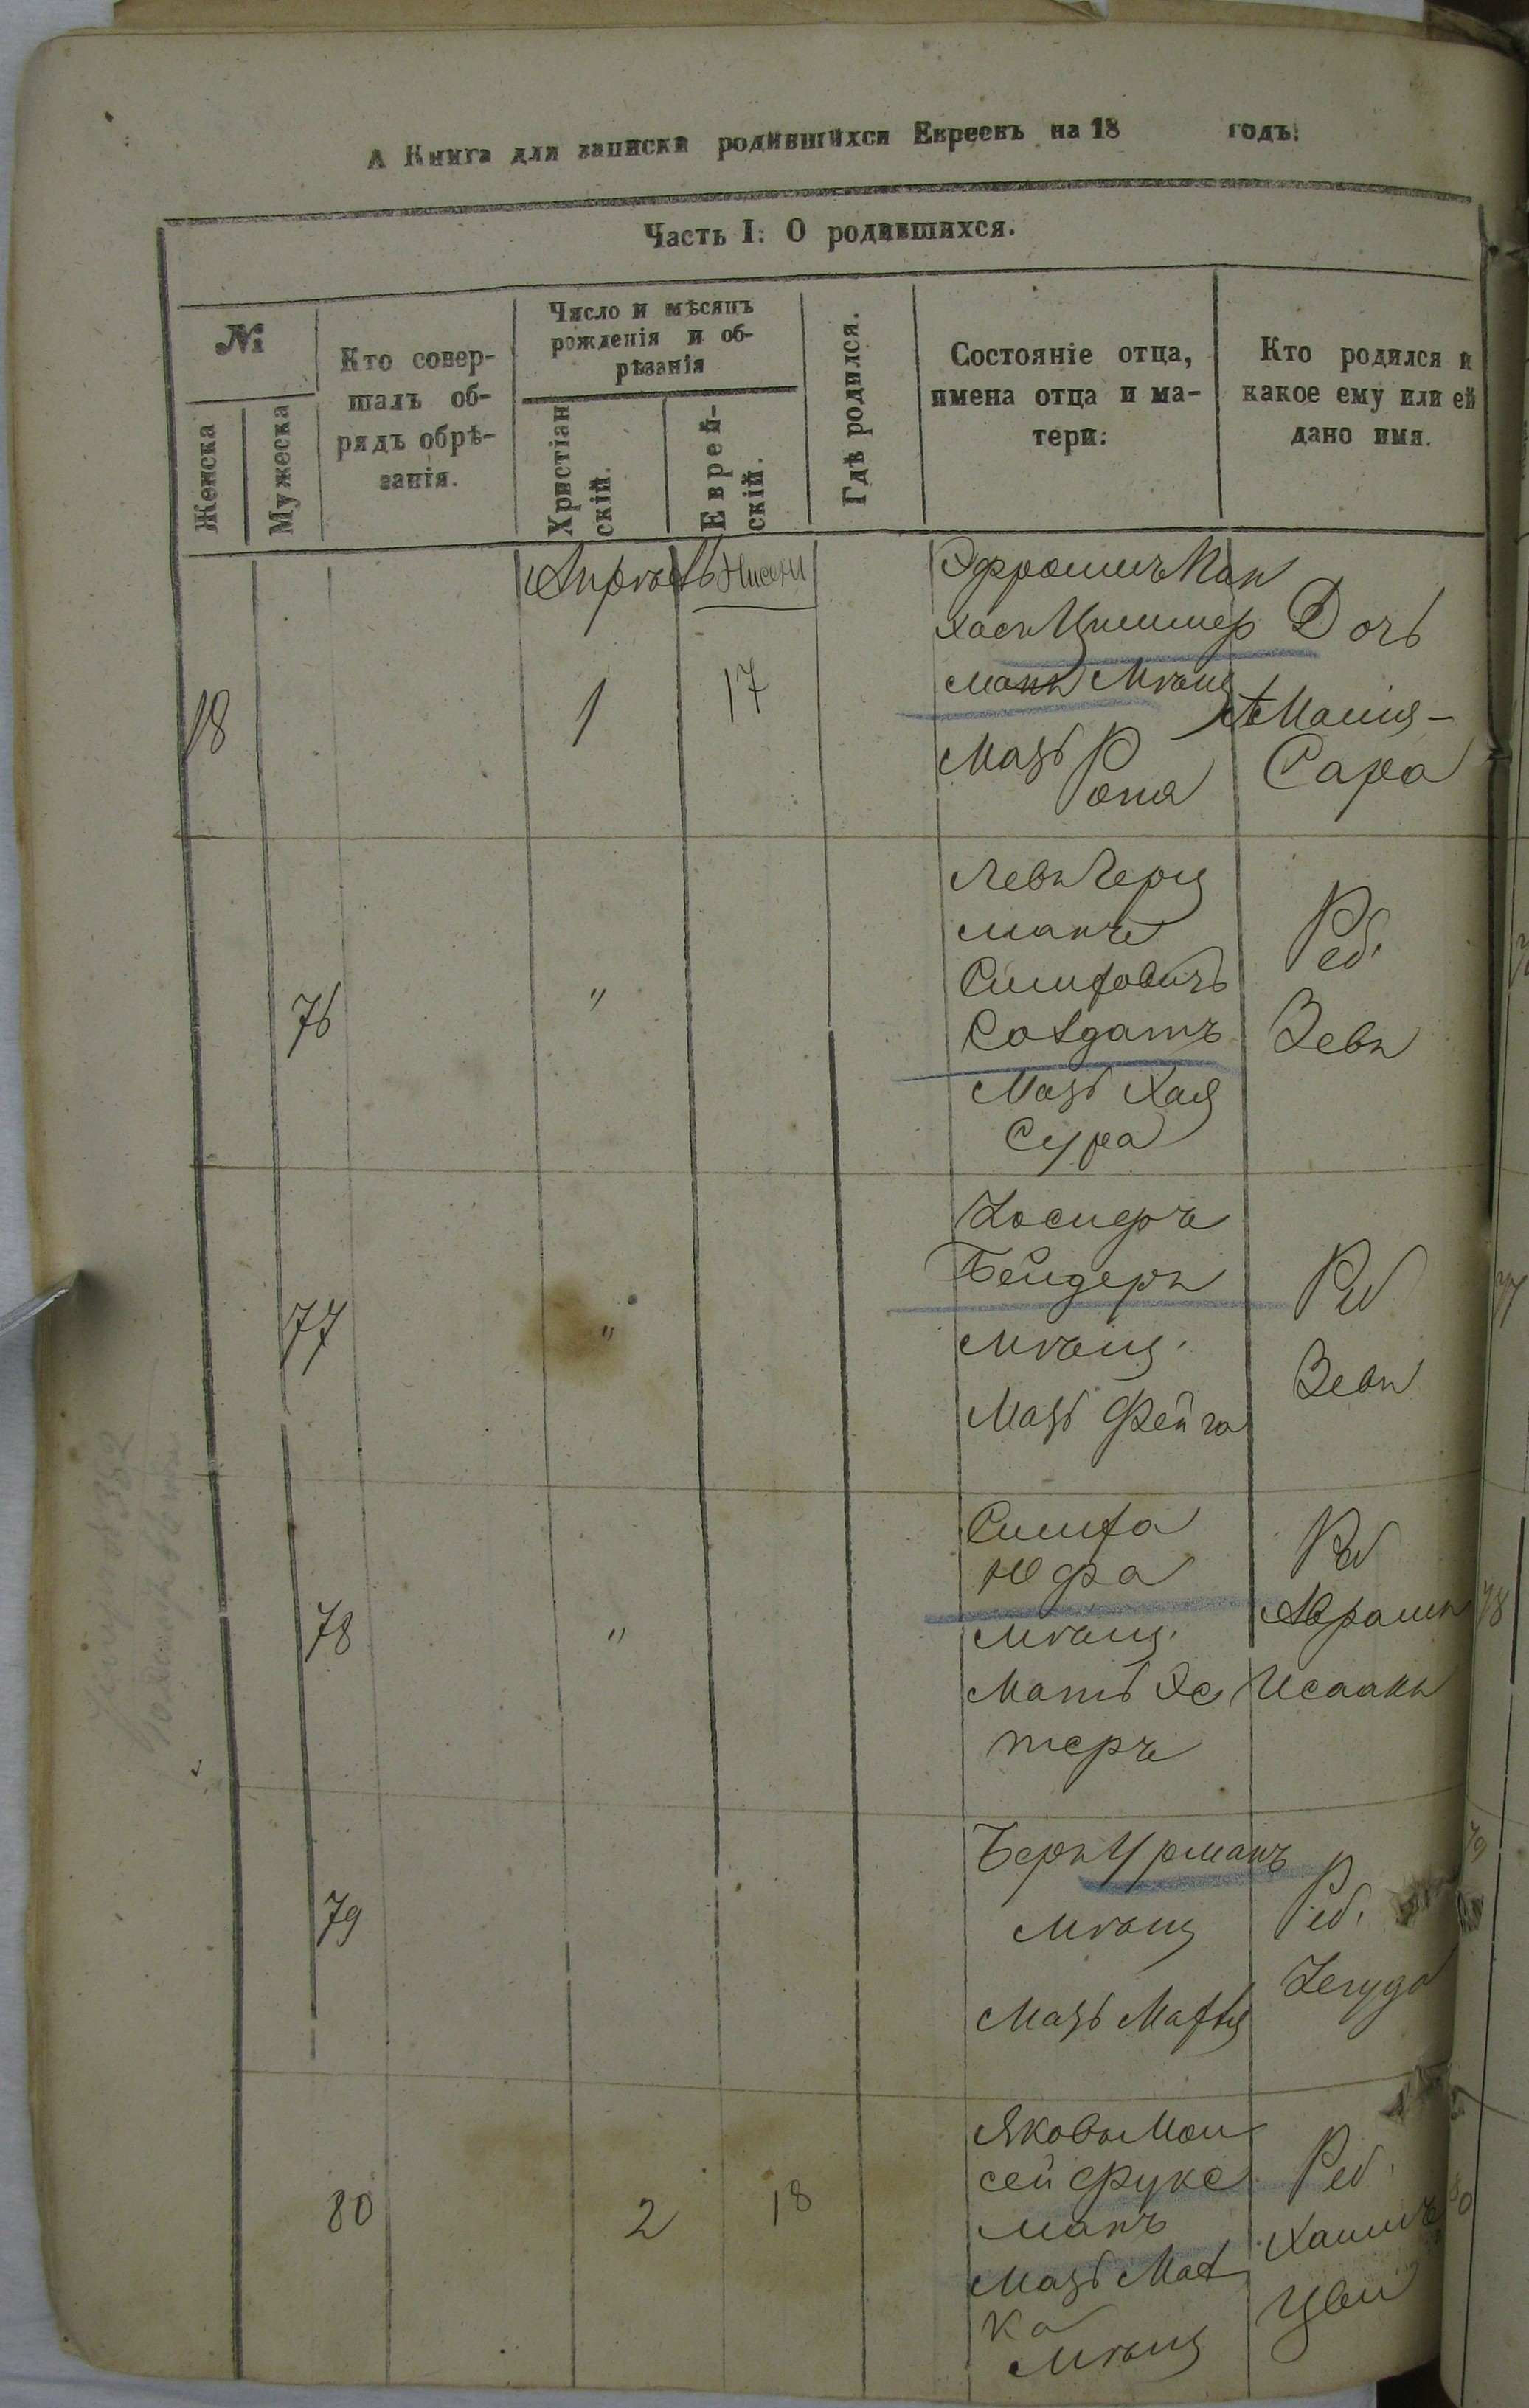 А Книга для записки родившихся Евреевъ на 18 годъ:
Часть I: О родившихся.
№
Женска
Мужеска
Кто совер-
шалъ об-
рядъ обрѣ-
занія.
Число и мѣсяцъ
рожденія и об-
рѣзанія
Христіан
скій.
Еврей-
скій.
Гдѣ родился.
Состояніе отца,
имена отца и ма-
тери:
Кто родился и
какое ему или ей
дано имя.
Апрель Нисень
18
1
17
Эфроимъ
Циммер
манъ Мѣщ
Мать
Дочь
Сара
76
"
Левъ Герц
манъ
Солдатъ
Мать Хая
Сура
Реб.
Зевъ
77
"
Іосифъ
Бендеръ
Мѣщ.
Мать Фейга
Реб
Зевъ
78
"
Симха
Юфа
Мѣщ.
Мать Эс
теръ
Реб
Абрамъ
Исаакъ
79
Беръ Урманъ
Мѣщ
Мать
Реб.
Іегуда
80
2
18
Яковъ Мои
сей Фукс
манъ
Мать Мал
ка
Мѣщ
Реб.
Хаимъ
Цви